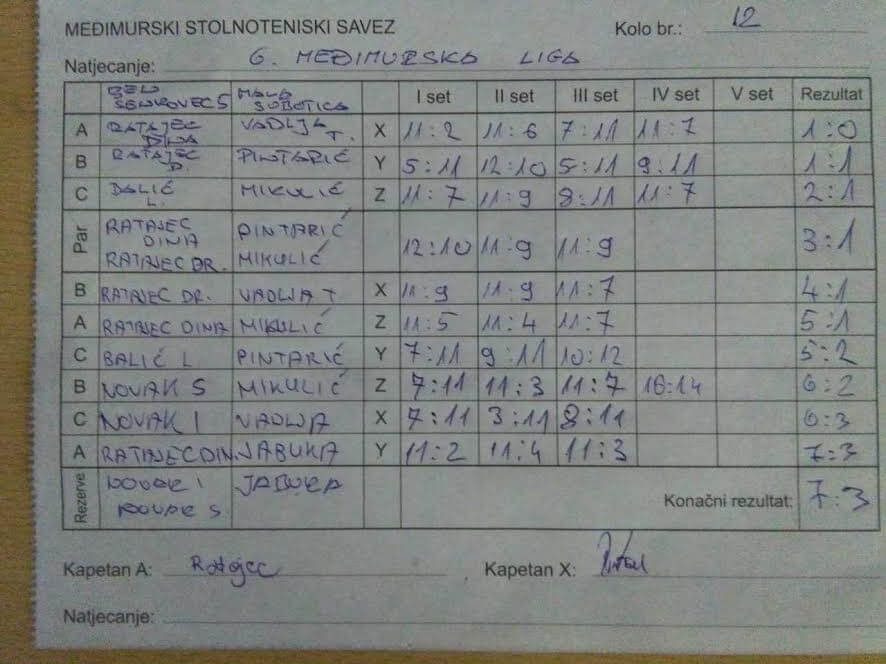 MEĐIMURSKI STOLNOTENISKI SAVEZ Kolo br.: 12
Natjecanje: 6. MEĐIMURSKA LIGA
SENKOVEC 5 MALA SUBOTICA I set II set III set IV set V set Rezultat
A RATAJEC DINA VADLJA T. X 11:2 11:6 7:11 11:7 1:0
B RATAJEC D. PINTARIĆ Y 5:11 12:10 5:11 9:11 1:1
C BALIĆ L. MIKULIĆ Z 11:7 11:9 8:11 11:7 2:1
Par RATAJEC DINA PINTARIĆ
RATAJEC DR. MIKULIĆ 12:10 11:9 11:9 3:1
B RATAJEC DR. VADLJA T X 11:9 11:9 11:7 4:1
A RATAJEC DINA MIKULIĆ Z 11:5 11:4 11:7 5:1
C BALIĆ L PINTARIĆ Y 7:11 9:11 10:12 5:2
B NOVAK S MIKULIĆ Z 7:11 11:3 11:7 16:14 6:2
C NOVAK I VADLJA X 7:11 3:11 8:11 6:3
A RATAJEC DIN JABUKA Y 11:2 11:4 11:3 7:3
Rezerve NOVAK I JABUKA
NOVAK S Konačni rezultat: 7:3
Kapetan A: Ratajec Kapetan X:
Natjecanje: